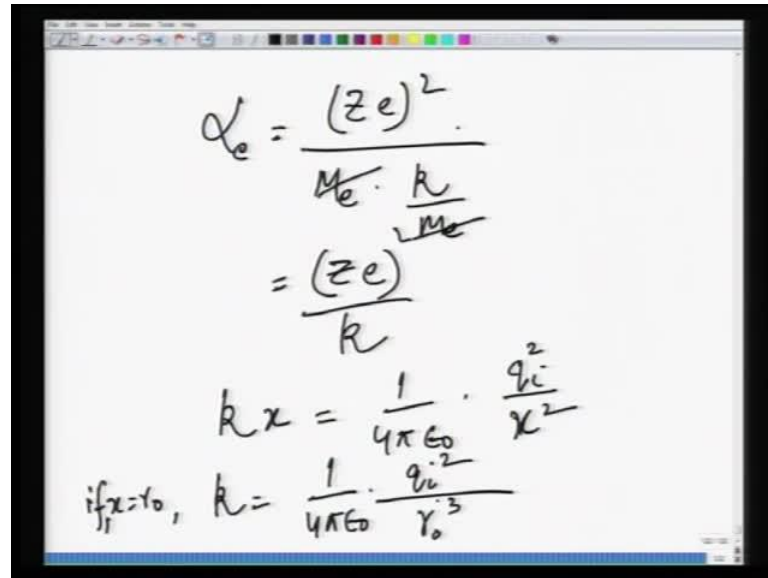 α_e = (Ze)^2 / (m_e · k/m_e)
= (Ze) / k
kx = 1/(4πε0) · q_i^2/x^2
if, x=r0, k = 1/(4πε0) · q_i^2/r0^3